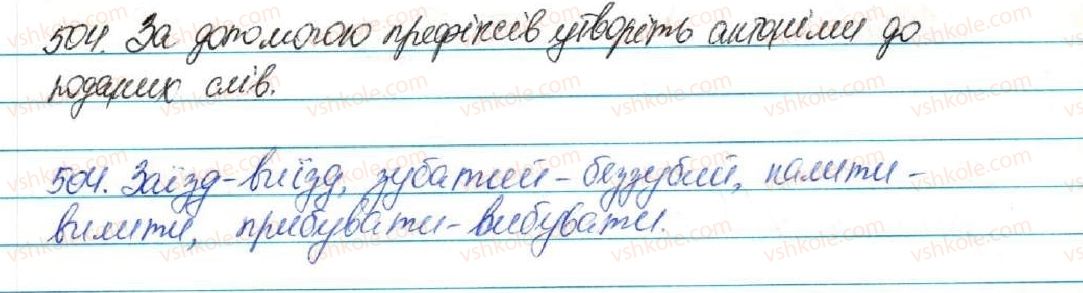 504. За допомогою префіксів утворіть антоніми до
поданих слів.
504. Заїзд-виїзд, зубатий-беззубий, налити-
вилити, прибувати-вибувати.